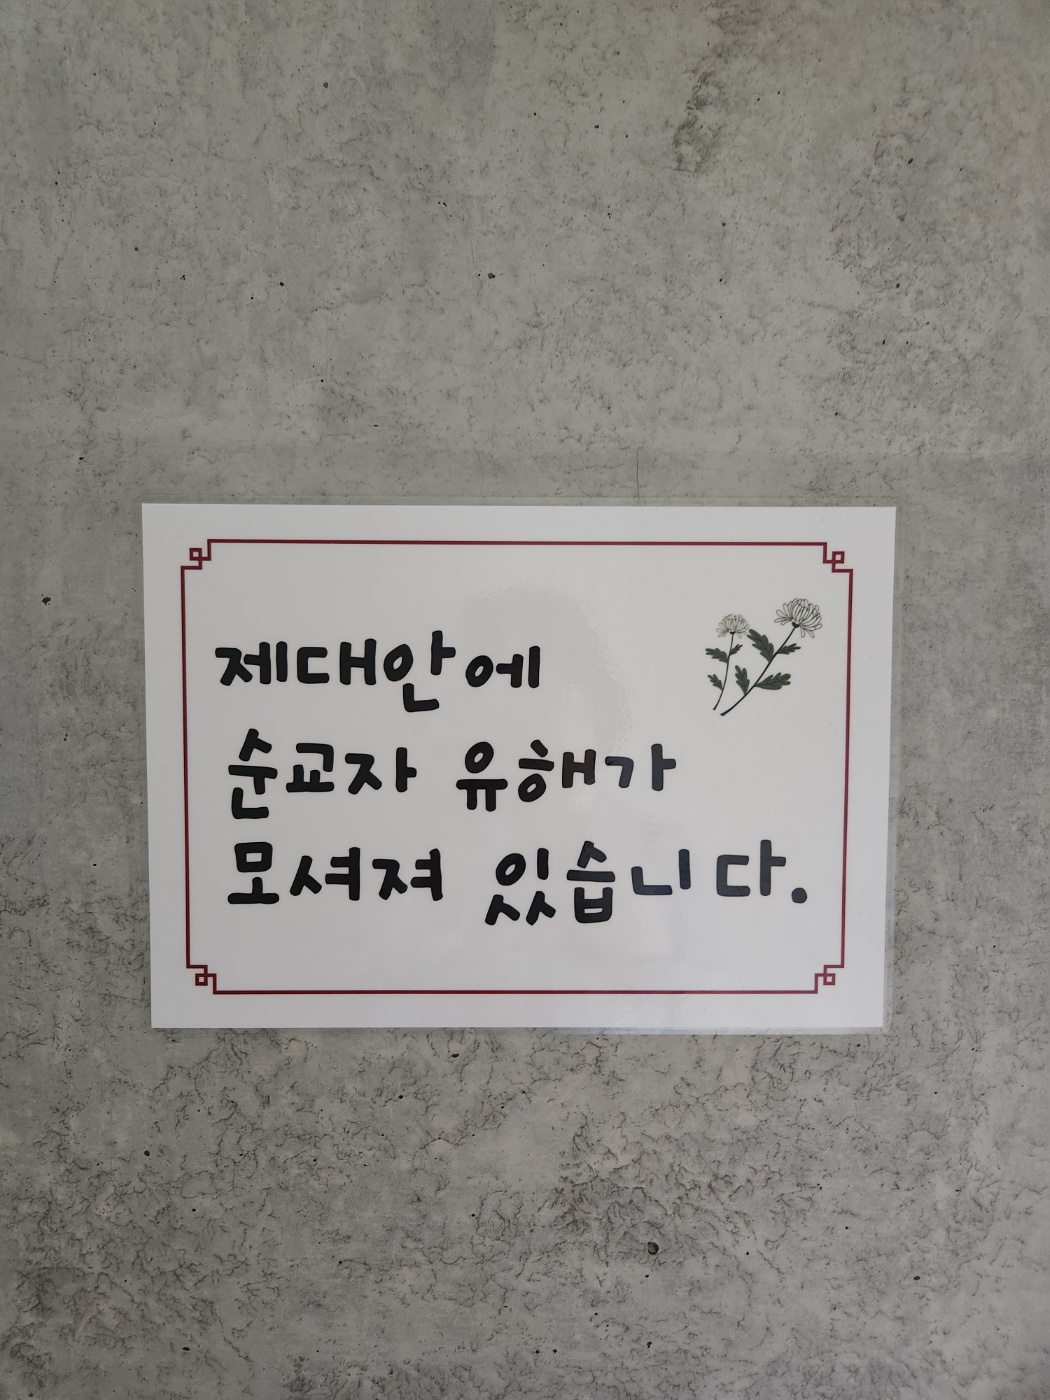 제대안에
순교자 유해가
모셔져 있습니다.